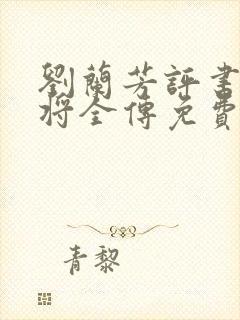 劉蘭芳評書
將全傳免費
青黎